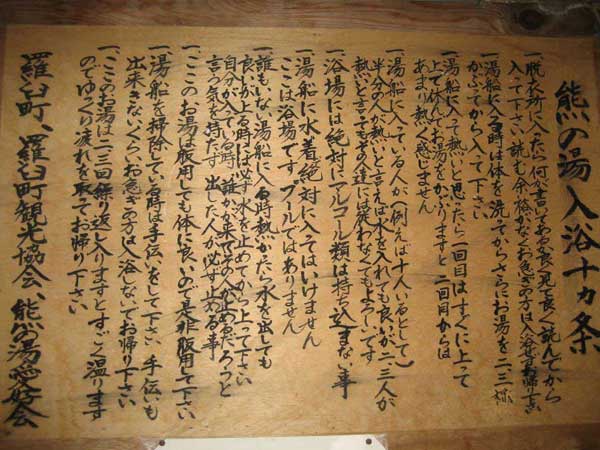 熊の湯入浴十ヵ条
一、脱衣所に入ったら何が書いてある良く見て良く読んでから
入って下さい 読む余裕がなくお急ぎの方は入浴せずお帰り下さい
一、湯船に入る時は体を洗ってからさらにお湯を二、三杯
かぶってから入って下さい
一、湯船に入って熱いと思ったら一回目はすぐに上って
上で休んでお湯をかぶりますと二回目からは
あまり熱く感じません
一、湯船に入っている人が(例えば十人いるとして)
半分の人が熱いと言えば水を入れても良いが二、三人が
熱いと言ってもその達には従わなくてもよろしいです
一、浴場には絶対にアルコール類は持ち込まない事
一、湯船に水着絶対に入ってはいけません
ここは浴場です。プールではありません
一、誰もいない湯船に入る時熱いからと水を出しても
良いが上る時には必ず水を止めてから上って下さい
自分が入っている時、誰かが来てその人が止めるだろうと
言う気を持たず 出した人が必ず止める事
一、ここのお湯は飲用しても体に良いので是非飲用して下さい
一、湯船を掃除している時は手伝いをして下さい 手伝いも
出来きないくらいお急ぎの方は入浴しないでお帰り下さい
一、ここのお湯は二、三回繰り返し入りますとすごく温ります
のでゆっくり疲れを取ってお帰り下さい
羅臼町、羅臼町観光協会、熊の湯愛好会